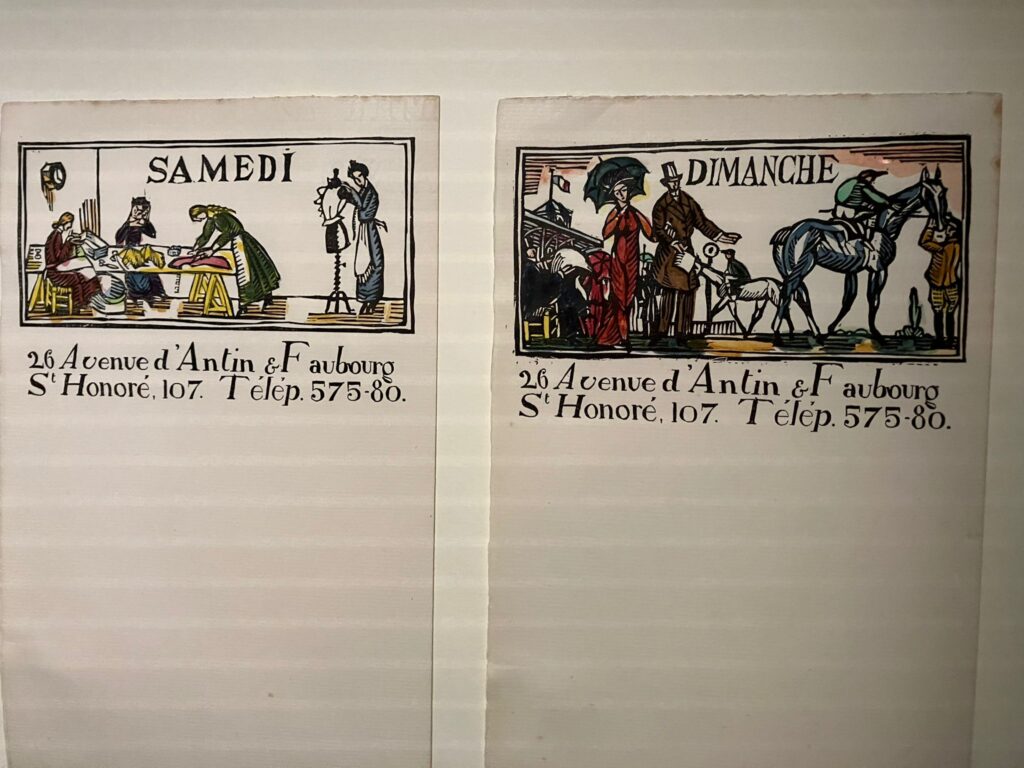 SAMEDI
26 Avenue d'Antin & Faubourg
St Honoré, 107. Télép. 575-80.
DIMANCHE
26 Avenue d'Antin & Faubourg
St Honoré, 107. Télép. 575-80.